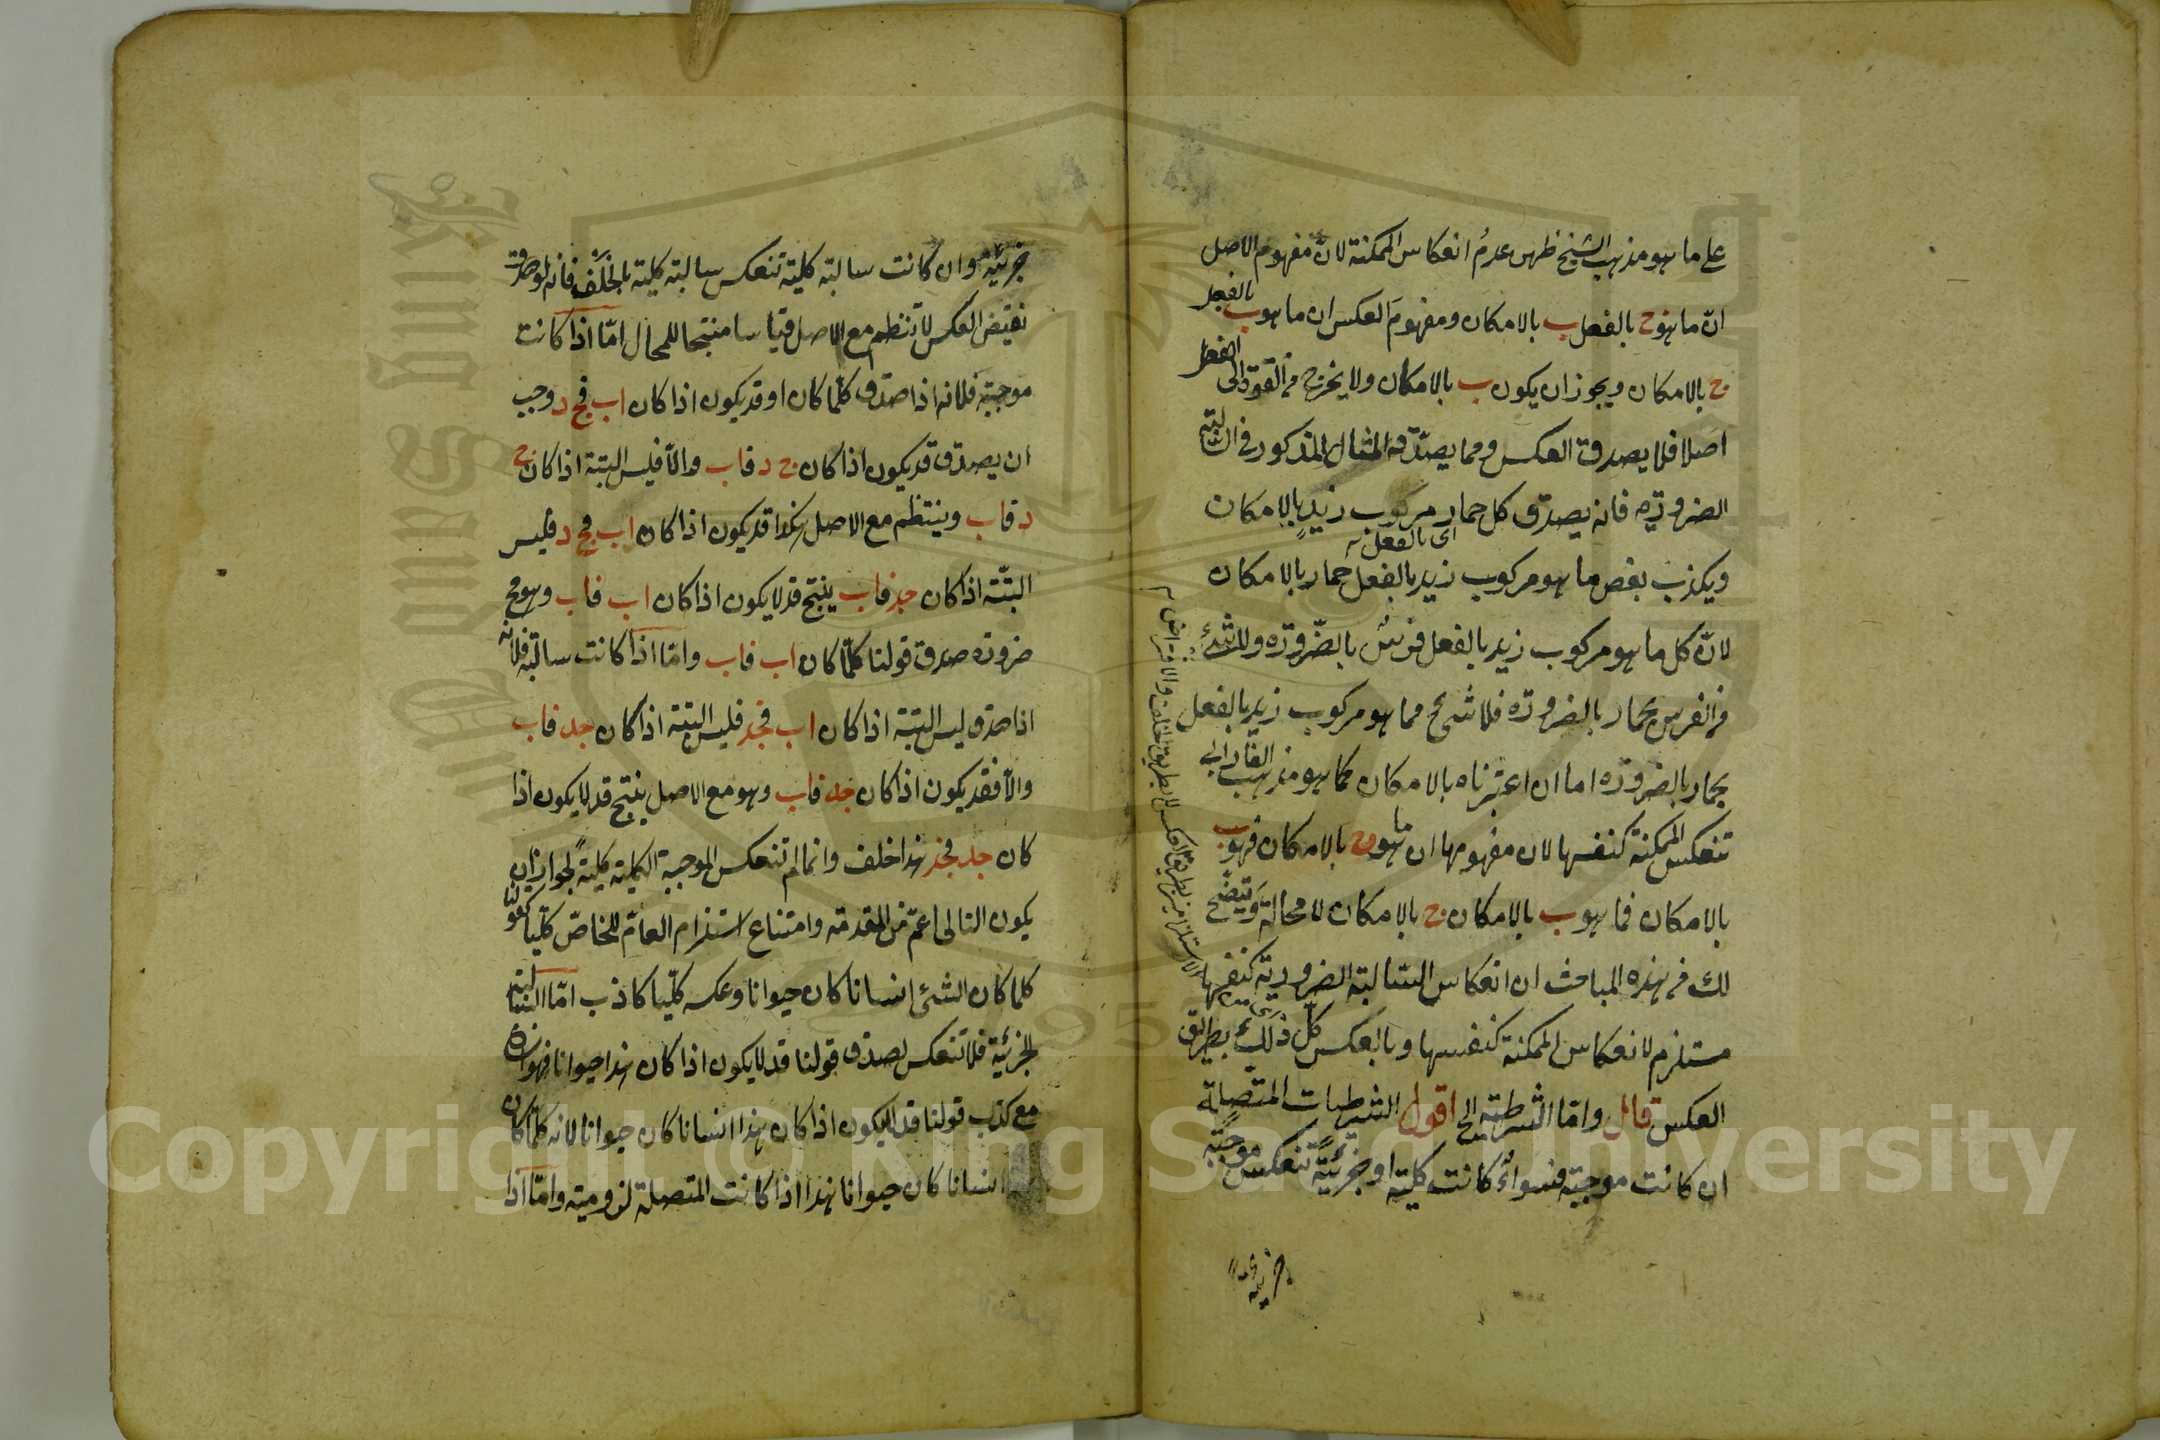 على ما هو مذهب الشيخ ظهر عدم انعكاس الممكنة لان مفهوم الاصل
انّ ما هو ج بالفعل ب بالامكان ومفهوم العكس ان ما هو ب بالفعل
ج بالامكان ويجوز ان يكون ب بالامكان ولا يخرج من القوة الى الفعل
اصلا فلا يصدق العكس ومما يصدّقه المثال المذكور في السالبة
الضرورية فانه يصدق كل حمار مركوب زيد بالامكان
اى بالفعل
ويكذب بعض ما هو مركوب زيد بالفعل حمار بالامكان
لانّ كل ما هو مركوب زيد بالفعل فرس بالضّرورة ولا شئ
من الفرس بحمار بالضرورة فلا شئ مما هو مركوب زيد بالفعل
بحمار بالضرورة اما ان اعتبرناه بالامكان كما هو مذهب الفارابى
تنعكس الممكنة كنفسها لان مفهومها ان ما هو ج بالامكان فهو ب
بالامكان فما هو ب بالامكان ج بالامكان لا محالة ويتضح
لك من هذه المباحث ان انعكاس السالبة الضرورية كنفسها
مستلزم لانعكاس الممكنة كنفسها وبالعكس كل ذلك بطريق
العكس قال واما الشرطية الخ اقول الشرطيات المتصلة
ان كانت موجبة فسواء كانت كلية او جزئية تنعكس موجبة
جزئية
جزئية وان كانت سالبة كلية تنعكس سالبة كلية بالخلف فانه لو صدق
نقيض العكس لانتظم مع الاصل قياسا منتجا للمحال امّا اذا كانت
موجبة فلانه اذا صدق كلما كان او قد يكون اذا كان اب فج د وجب
ان يصدق قد يكون اذا كان ج د فاب والّا فليس البتة اذا كان ج
د فاب وينتظم مع الاصل هكذا قد يكون اذا كان اب فج د فليس
البتّة اذا كان جد فاب ينتج قد لا يكون اذا كان اب فاب وهو مح
ضرورة صدق قولنا كلّما كان اب فاب وامّا اذا كانت سالبة فلانه
اذا صدق ليس البتة اذا كان اب فجد فليس البتة اذا كان جد فاب
والّا فقد يكون اذا كان جد فاب وهو مع الاصل ينتج قد لا يكون اذا
كان جد فجد هذا خلف وانما لم تنعكس الموجبة الكلية كلية لجواز ان
يكون التالى اعمّ من المقدمة وامتناع استلزام العامّ للخاصّ كليّا كقولنا
كلما كان الشئ انسانا كان حيوانا وعكسه كليّا كاذب امّا السالبة
الجزئية فلا تنعكس لصدق قولنا قد لا يكون اذا كان هذا حيوانا فهو انسان
مع كذب قولنا قد لا يكون اذا كان هذا انسانا كان حيوانا لانه كلما كان
انسانا كان حيوانا هذا اذا كانت المتصلة لزومية وامّا اذا